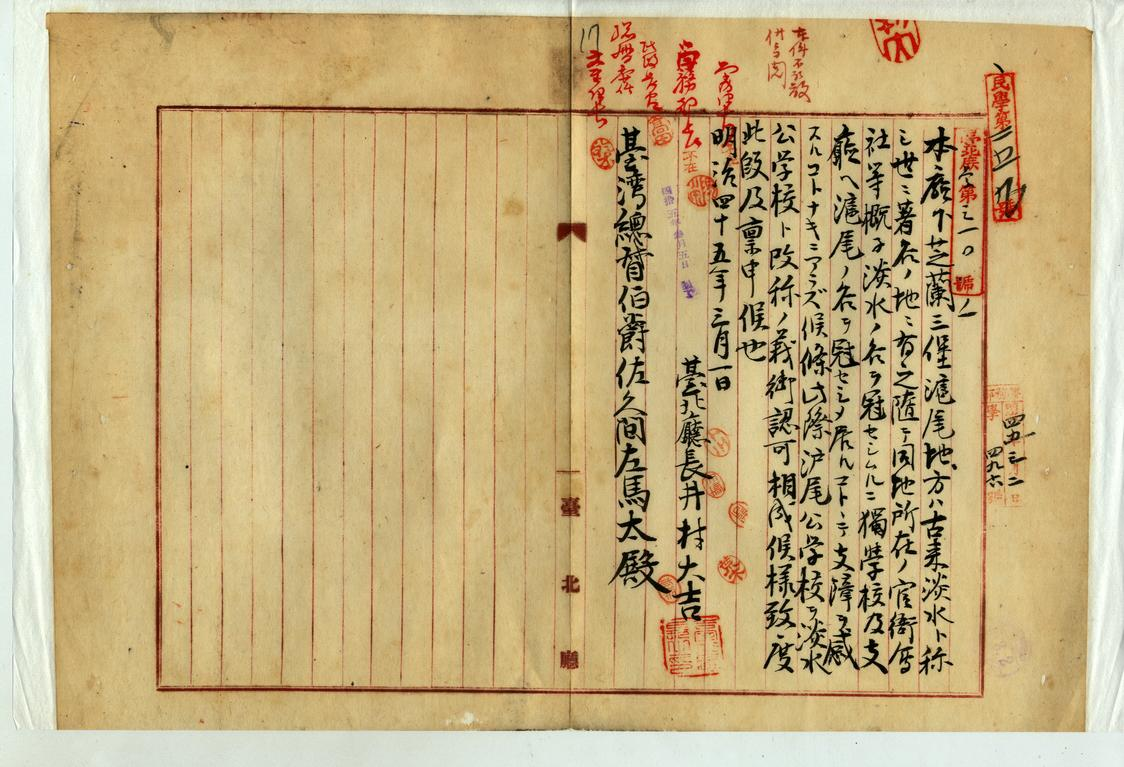 民學第二五九號
臺北庶學第三一〇號ノ一
四五 三 二
四九六
本廳下芝蘭三堡滬尾地方ハ古来淡水ト称
シ世ニ著名ノ地ニ有之随テ同地所在ノ官衙會
社等概子淡水ノ名ヲ冠セシムルニ獨學校及支
廳ヘ滬尾ノ名ヲ冠セシメ居ルコトニテ支障ヲ感
スルコトナキニアラズ候條此際沪尾公学校ヲ淡水
公学校ト改称ノ義御認可相成候様致度
此段及禀申候也
明治四十五年三月一日
臺北廳長井村大吉
臺灣總督伯爵佐久間左馬太殿
不在
17
臺北廳